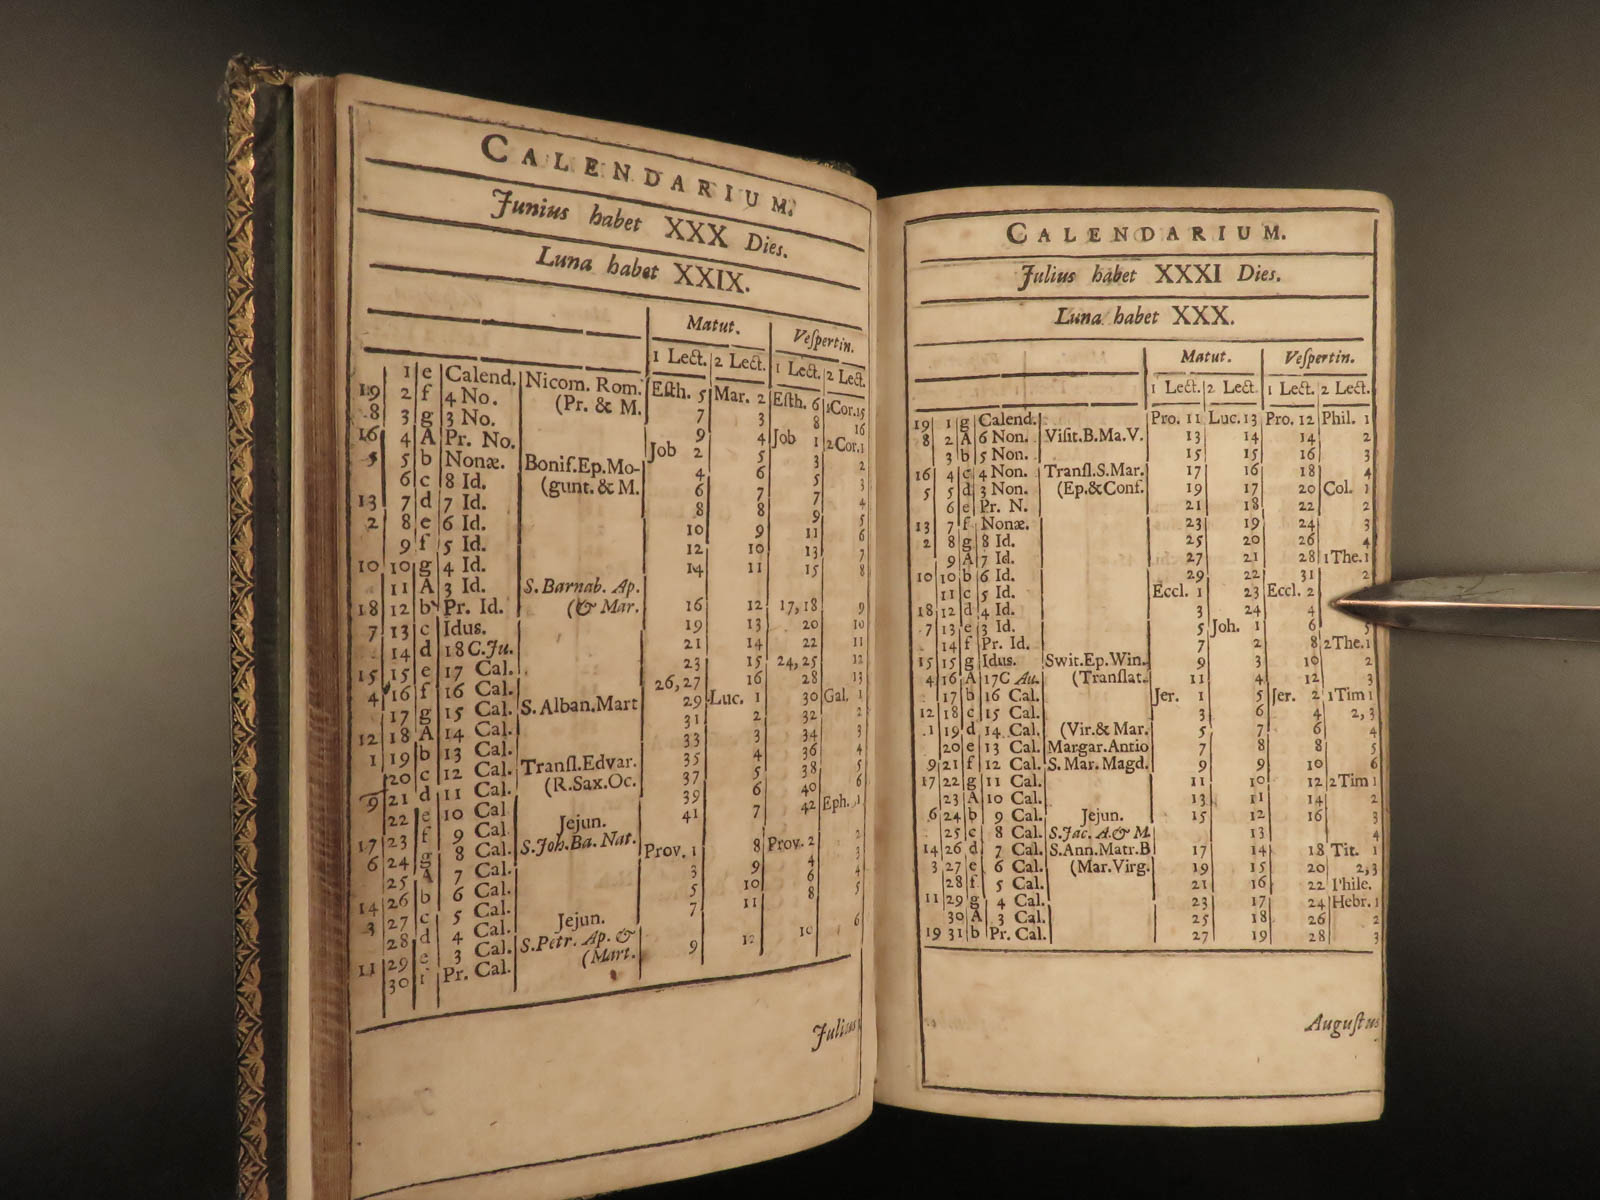 CALENDARIUM.
Junius habet XXX Dies.
Luna habet XXIX.
Matut. Veſpertin.
1 Lect. 2 Lect. 1 Lect. 2 Lect.
1 e Calend. Nicom. Rom. Eſth. 5 Mar. 2 Eſth. 6 1Cor.15
19 2 f 4 No. (Pr. & M. 7 3 8 16
8 3 g 3 No. 9 4 Job 1 2Cor.1
16 4 A Pr. No. Job 2 5 3 2
5 5 b Nonæ. Bonif.Ep.Mo- 4 6 5 3
6 c 8 Id. (gunt. & M. 6 7 7 4
13 7 d 7 Id. 8 8 9 5
2 8 e 6 Id. 10 9 11 6
9 f 5 Id. 12 10 13 7
10 10 g 4 Id. 14 11 15 8
11 A 3 Id. S. Barnab. Ap.
18 12 b Pr. Id. (& Mar. 16 12 17,18 9
7 13 c Idus. 19 13 20 10
14 d 18 C.Ju. 21 14 22 11
15 15 e 17 Cal. 23 15 24,25 12
4 16 f 16 Cal. 26,27 16 28 13
17 g 15 Cal. S. Alban.Mart 29 Luc. 1 30 Gal. 1
12 18 A 14 Cal. 31 2 32 2
1 19 b 13 Cal. 33 3 34 3
20 c 12 Cal. Tranſl.Edvar. 35 4 36 4
9 21 d 11 Cal. (R.Sax.Oc. 37 5 38 5
22 e 10 Cal. 39 6 40 6
17 23 f 9 Cal. Jejun. 41 7 42 Eph. 1
6 24 g 8 Cal. S.Joh.Ba. Nat.
25 A 7 Cal. Prov. 1 8 Prov. 2 2
14 26 b 6 Cal. 3 9 4 3
3 27 c 5 Cal. 5 10 6 4
28 d 4 Cal. Jejun. 7 11 8 5
11 29 e 3 Cal. S.Petr. Ap. &
30 Pr. Cal. (Mart. 9 12 10 6
Julius
CALENDARIUM.
Julius habet XXXI Dies.
Luna habet XXX.
Matut. Veſpertin.
1 Lect. 2 Lect. 1 Lect. 2 Lect.
19 1 g Calend. Pro. 11 Luc.13 Pro. 12 Phil. 1
8 2 A 6 Non. Viſit.B.Ma.V. 13 14 14 2
3 b 5 Non. 15 15 16 3
16 4 c 4 Non. Tranſl.S.Mar. 17 16 18 4
5 5 d 3 Non. (Ep.&Conf. 19 17 20 Col. 1
6 e Pr. N. 21 18 22 2
13 7 f Nonæ. 23 19 24 3
2 8 g 8 Id. 25 20 26 4
9 A 7 Id. 27 21 28 1The.1
10 10 b 6 Id. 29 22 31 2
11 c 5 Id. Eccl. 1 23 Eccl. 2
18 12 d 4 Id. 3 24 4
7 13 e 3 Id. 5 Joh. 1 6 5
14 f Pr. Id. 7 2 8 2The.1
15 15 g Idus. Swit.Ep.Win. 9 3 10 2
4 16 A 17C Au. (Tranſlat. 11 4 12 3
17 b 16 Cal. Jer. 1 5 Jer. 2 1Tim 1
12 18 c 15 Cal. 3 6 4 2,3
1 19 d 14 Cal. (Vir.& Mar. 5 7 6 4
20 e 13 Cal. Margar.Antio 7 8 8 5
9 21 f 12 Cal. S. Mar. Magd. 9 9 10 6
17 22 g 11 Cal. 11 10 12 2Tim 1
23 A 10 Cal. 13 11 14 2
6 24 b 9 Cal. Jejun. 15 12 16 3
25 c 8 Cal. S.Jac. A.& M. 13 4
14 26 d 7 Cal. S.Ann.Matr.B 17 14 18 Tit. 1
3 27 e 6 Cal. (Mar.Virg. 19 15 20 2,3
28 f 5 Cal. 21 16 22 Phile.
11 29 g 4 Cal. 23 17 24 Hebr. 1
30 A 3 Cal. 25 18 26 2
19 31 b Pr. Cal. 27 19 28 3
Auguſtus